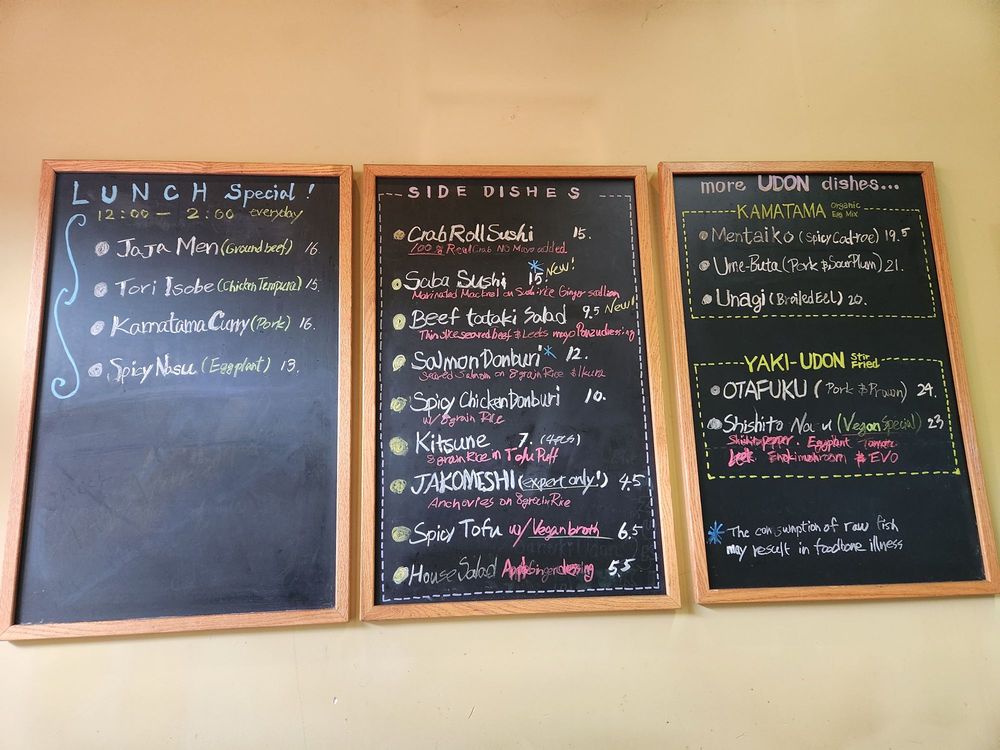 LUNCH Special!
12:00 – 2:00 everyday
JaJa Men (Ground beef) 16.
Tori Isobe (Chicken Tempura) 15.
Kamatama Curry (Pork) 16.
Spicy Nasu (Eggplant) 13.
SIDE DISHES
Crab Roll Sushi 15.
100% Real Crab NO Mayo added
Saba Sushi * 15. New!
Marinated Mackrel on Sushi rice Ginger scallion
Beef tataki Salad 9.5 New!
Thin slice seared beef & Leeks mayo Ponzu dressing
Salmon Donburi * 12.
Seared Salmon on 8 grain Rice & Ikura
Spicy Chicken Donburi 10.
w/ 8 grain Rice
Kitsune 7. (4pcs)
8 grain Rice in Tofu Puff
JAKOMESHI (expert only!) 4.5
Anchovies on 8 grain Rice
Spicy Tofu w/ Vegan broth 6.5
House Salad Apple ginger dressing 5.5
more UDON dishes...
KAMATAMA Organic Egg Mix
Mentaiko (Spicy Cod roe) 19.5
Ume-Buta (Pork & Sour Plum) 21.
Unagi (Broiled Eel) 20.
YAKI-UDON Stir Fried
OTAFUKU (Pork & Prawn) 24.
Shishito (Vegan Special) 23
Shishito pepper. Eggplant Tomato
Leek. Enoki mushroom & EVO
* The consumption of raw fish
may result in foodbone illness